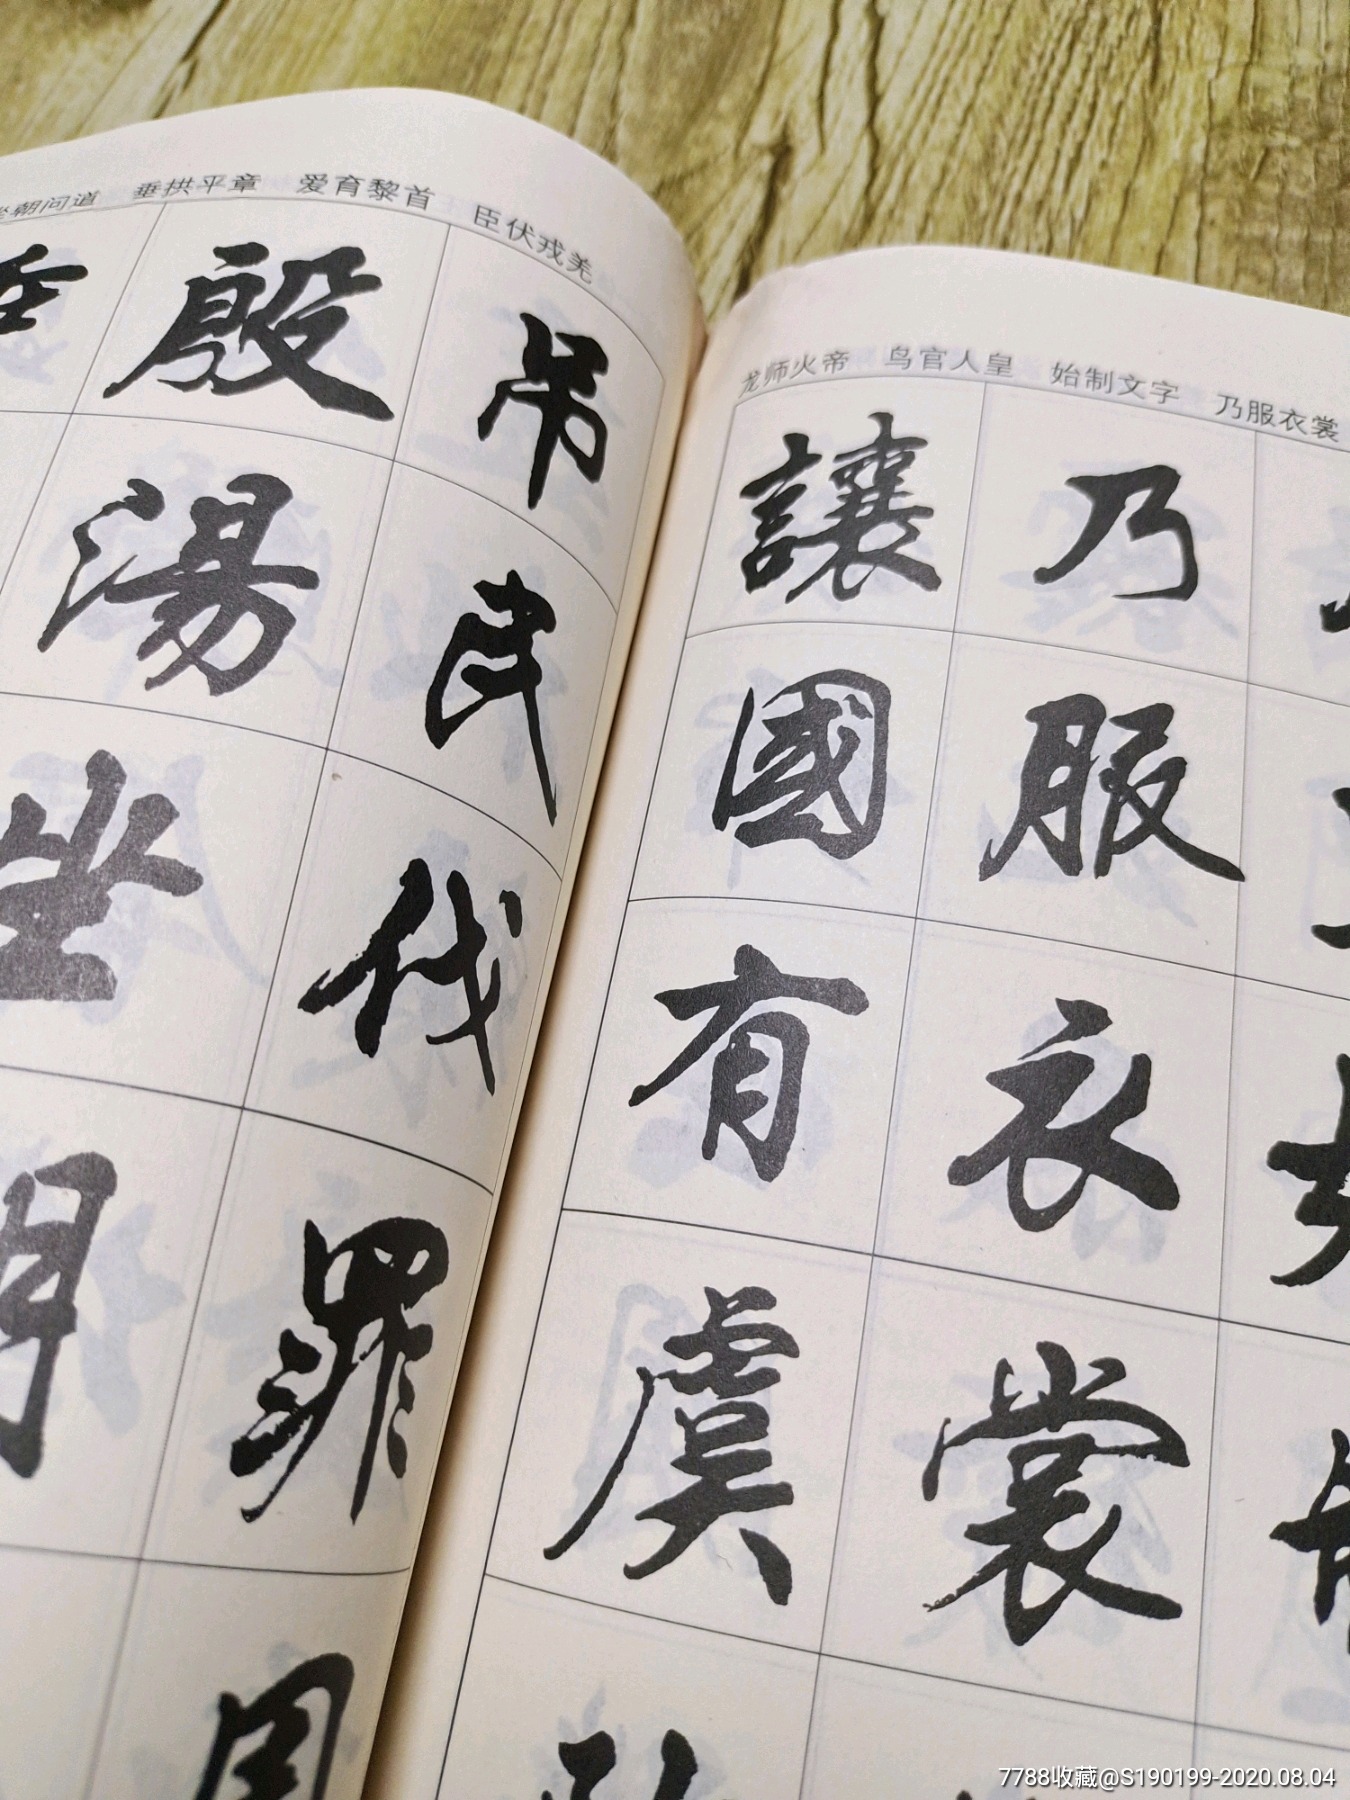 朝问道 垂拱平章 爱育黎首 臣伏戎羌
吊民伐罪周
殷湯坐朝
龙师火帝 鸟官人皇 始制文字 乃服衣裳
乃服衣裳
讓國有虞
7788收藏@S190199-2020.08.04